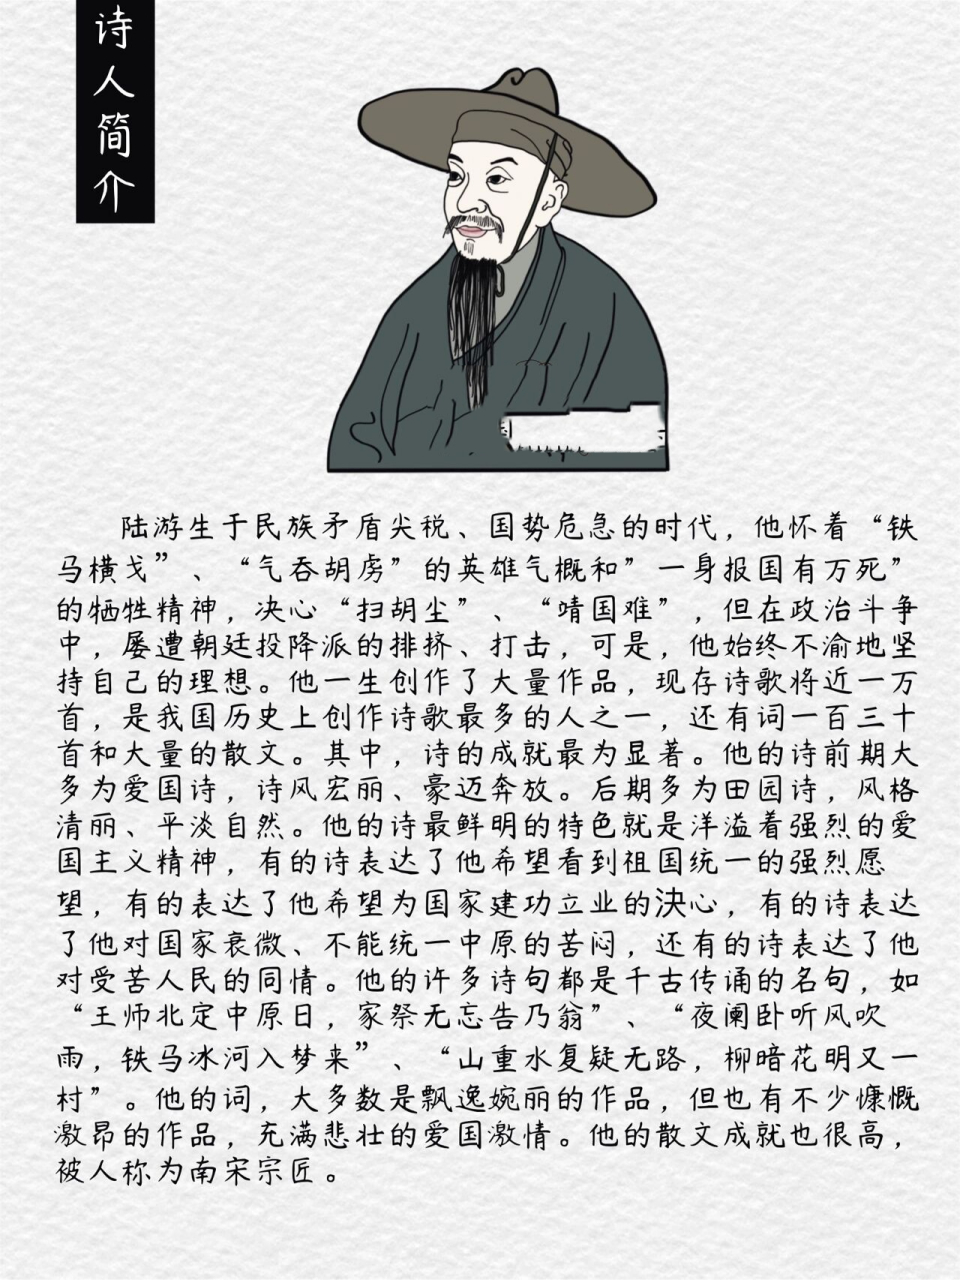 诗人简介
陆游生于民族矛盾尖税、国势危急的时代，他怀着“铁
马横戈”、“气吞胡虏”的英雄气概和”一身报国有万死”
的牺牲精神，决心“扫胡尘”、“靖国难”，但在政治斗争
中，屡遭朝廷投降派的排挤、打击，可是，他始终不渝地坚
持自己的理想。他一生创作了大量作品，现存诗歌将近一万
首，是我国历史上创作诗歌最多的人之一，还有词一百三十
首和大量的散文。其中，诗的成就最为显著。他的诗前期大
多为爱国诗，诗风宏丽、豪迈奔放。后期多为田园诗，风格
清丽、平淡自然。他的诗最鲜明的特色就是洋溢着强烈的爱
国主义精神，有的诗表达了他希望看到祖国统一的强烈愿
望，有的表达了他希望为国家建功立业的決心，有的诗表达
了他对国家衰微、不能统一中原的苦闷，还有的诗表达了他
对受苦人民的同情。他的许多诗句都是千古传诵的名句，如
“王师北定中原日，家祭无忘告乃翁”、“夜阑卧听风吹
雨，铁马冰河入梦来”、“山重水复疑无路，柳暗花明又一
村”。他的词，大多数是飘逸婉丽的作品，但也有不少慷慨
激昂的作品，充满悲壮的爱国激情。他的散文成就也很高，
被人称为南宋宗匠。